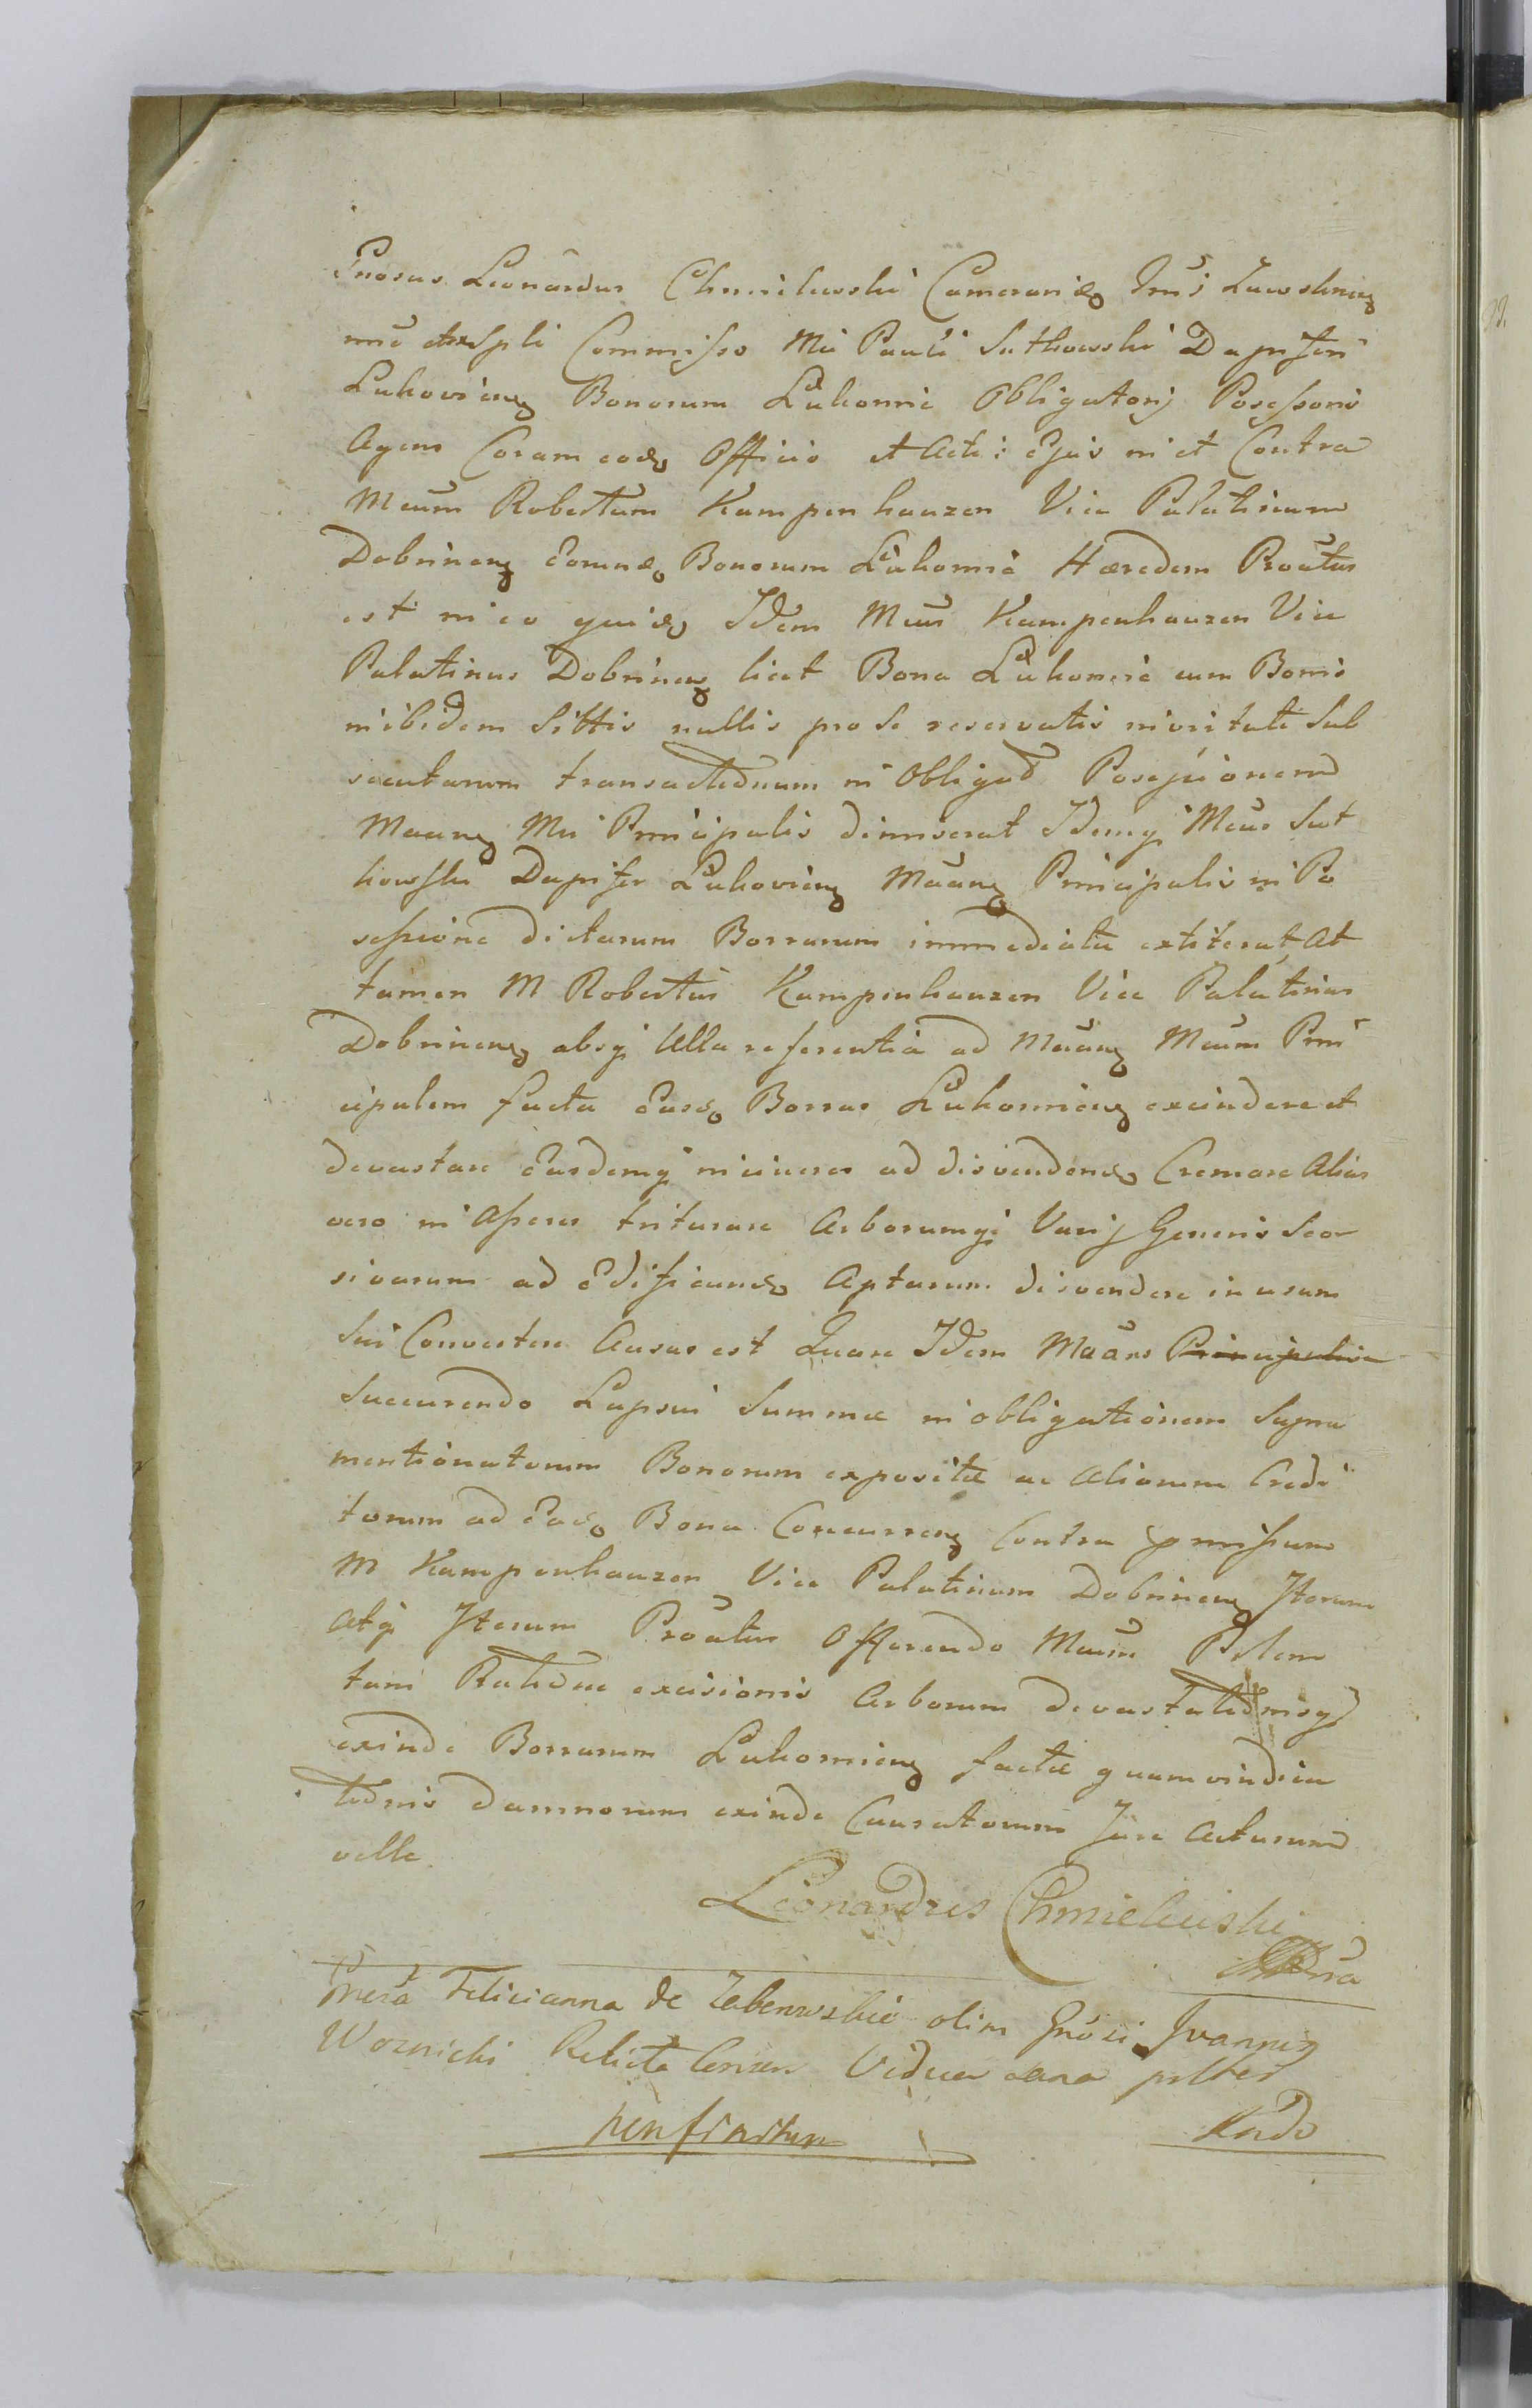 Gnosus Leonardus Chmielewski Camerarius Trris Zawskrien
Commisso Mci Pauli Sutkowski Dapiferi
Lukoviens Bonorum Łukomie Obligatorij Posessoris
Agens Coram eod Officio et Actis Ejus in et Contra
Mcum Robertum Kampenhauzen Vice Palatinum
Dobrinens eorund Bonorum Łukomie Hæredem Proatus
est in eo quid Idem Mcus Kampenhauzen Vice
Palatinus Dobrinens licet Bona Łukomie cum Borris
inibidem Sittis nullis pro se reservatis in vi tali sub
secutarum transactionum in Obligat Posessionem
Maang Mci Principalis dimiserat Idemq Mcus Sut
kowski Dapifer Łukoviens Maang Principalis in Po
sessione dictarum Borrarum immediate extiterat At
tamen M Robertus Kampenhauzen Vice Palatinus
Dobrinens absq Ulla referentia ad Maang Mcum Prin
cipalem facta Easd Borras Łukomiens excindere et
devastare Easdemq in cineres ad disvendend Cremare Alias
vero in Asseres triturare Arborumq Varij Generis Seor
sivarum ad Edificand Aptarum disvendere in usum
Sui Convertere Ausus est Quare Idem Maans Principalis
Succurendo Lapsui Summæ in obligationem Supra
mentionatorum Bonorum expositæ ac Aliorum Credi
torum ad Ead Bona Concurrens Contra præmissum
M Kampenhauzen Vice Palatinum Dobrinens Iterum
Atq Iterum Proatus Offerendo Mcum Plem
tam Ratione excisionis Arborum devastationisq
exinde Borrarum Łukomiens factæ quam vindica
tionis damnorum exinde Causatorum Jure Acturum
velle
Leonardus Chmielewski
mpria
Gnesa Felicianna de olim Gnosi Joannis
Woznicki Relicta Vidua